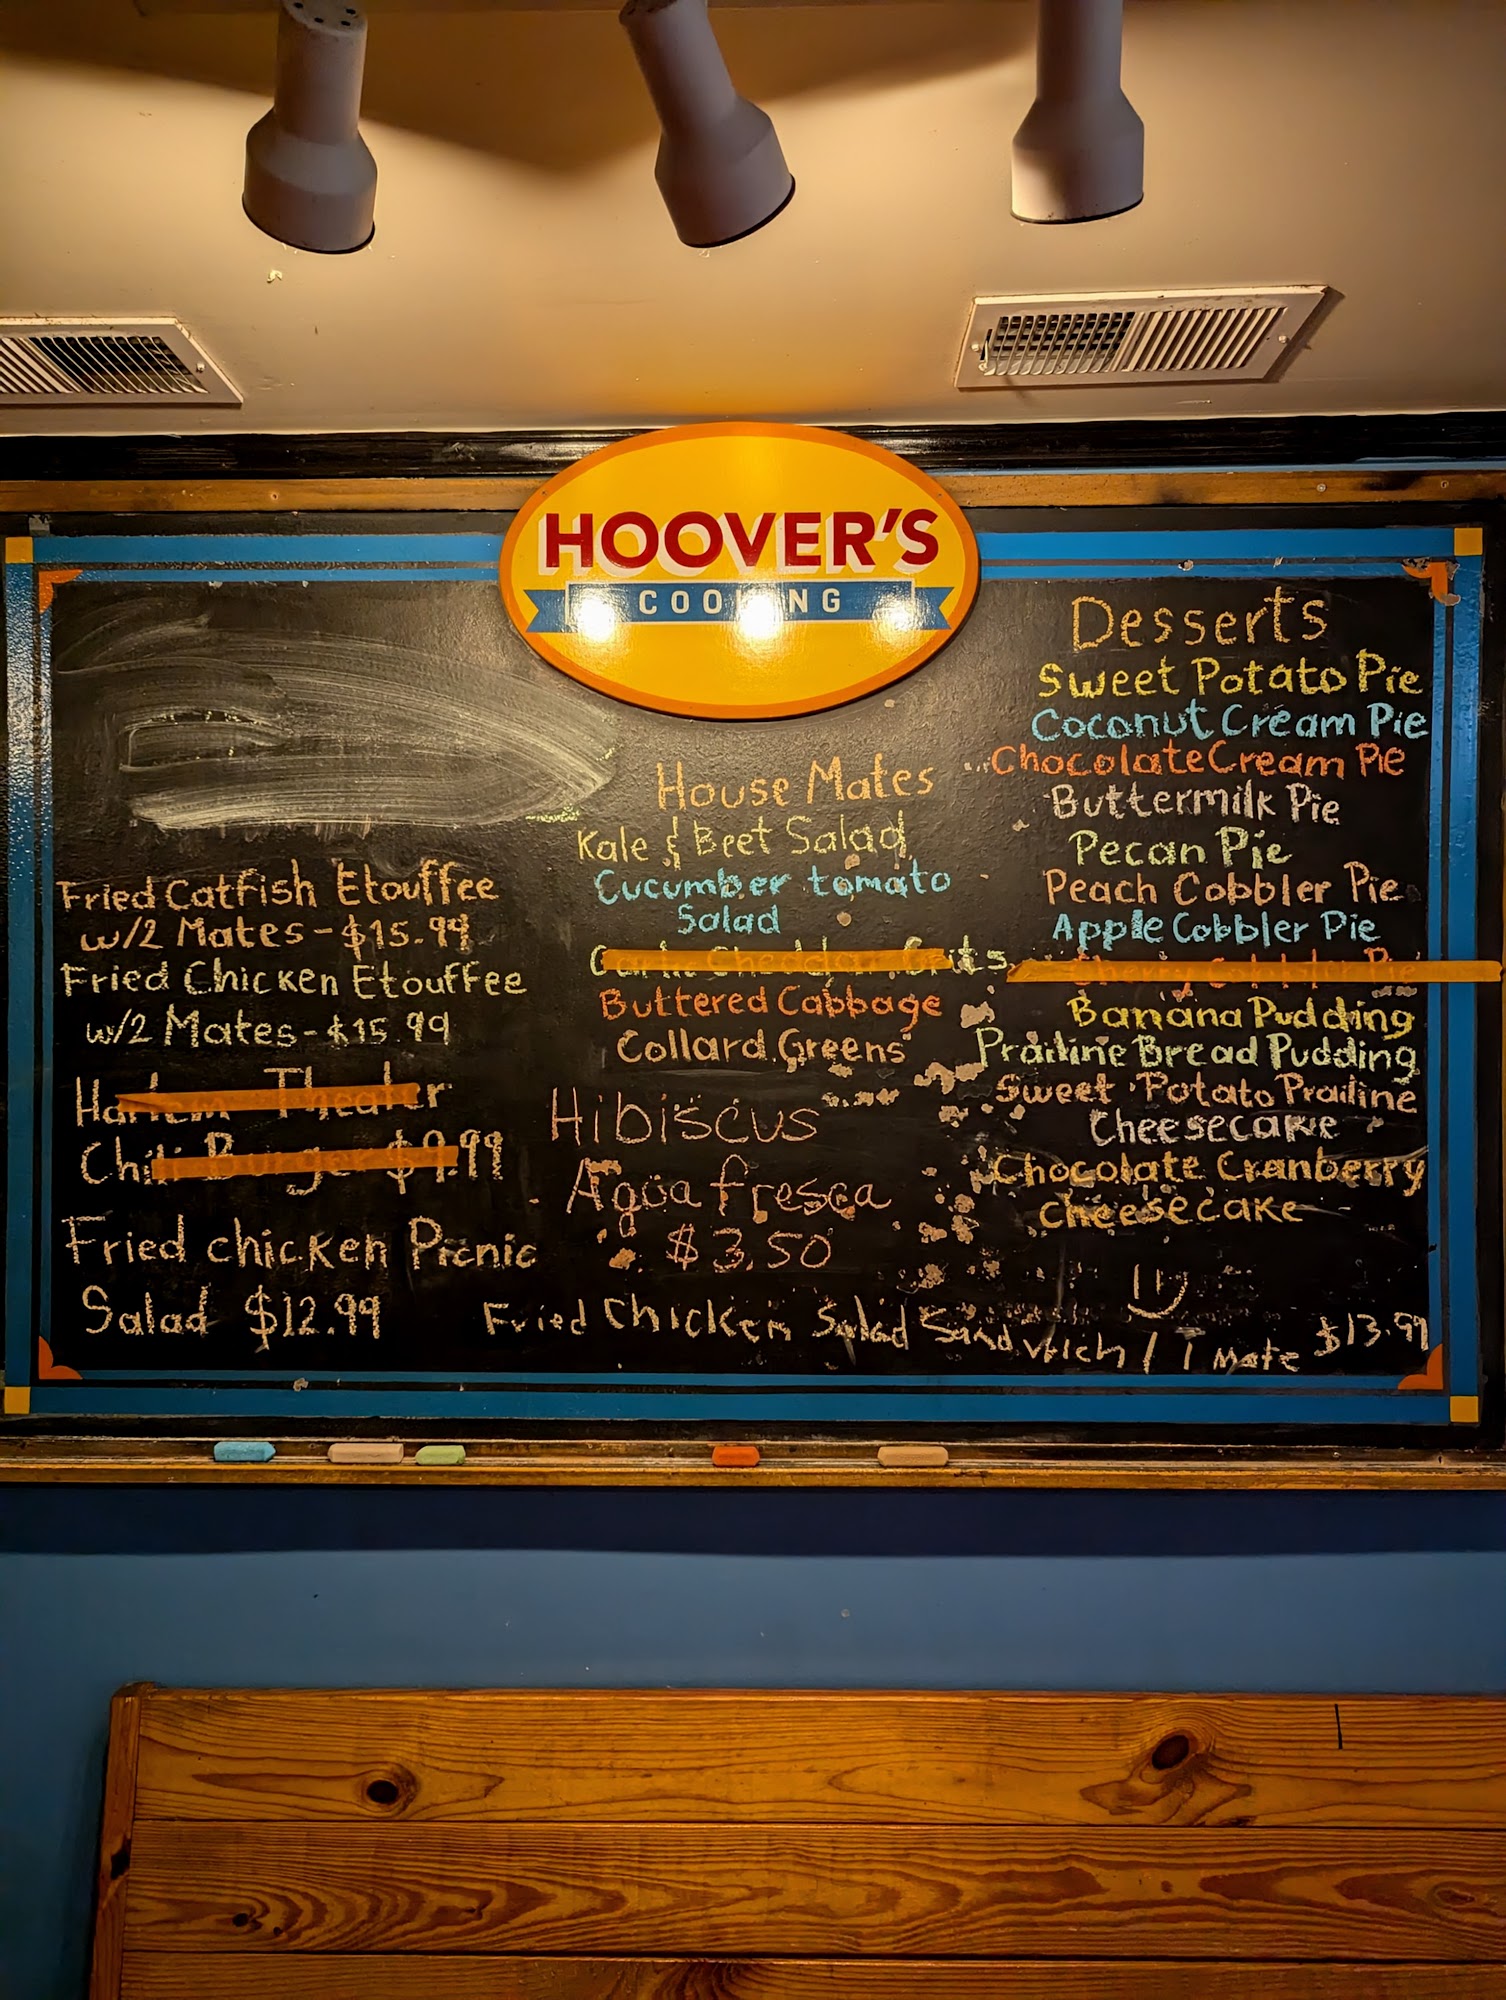 HOOVER'S
COOKING
Fried Catfish Etouffee
w/2 Mates - $15.99
Fried Chicken Etouffee
w/2 Mates - $15.99
Harlem Theater
Chili Burger $9.99
Fried chicken Picnic
Salad $12.99
House Mates
Kale & Beet Salad
Cucumber tomato
Salad
Garlic Cheddar Grits
Buttered Cabbage
Collard Greens
Hibiscus
Agua fresca
$3.50
Desserts
Sweet Potato Pie
Coconut Cream Pie
Chocolate Cream Pie
Buttermilk Pie
Pecan Pie
Peach Cobbler Pie
Apple Cobbler Pie
Cherry Cobbler Pie
Banana Pudding
Prailine Bread Pudding
Sweet Potato Prailine
Cheesecake
Chocolate Cranberry
cheesecake
Fried Chicken Salad Sandwich / 1 Mate $13.99